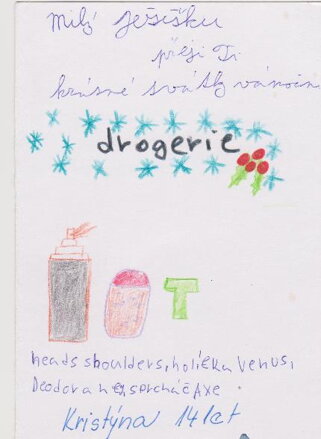 milý ježíšku
přeji Ti
krásné svátky vánoční
drogerie
T
heads shoulders, holička Venus,
Deodoran sprcháč Axe
Kristýna 14 let